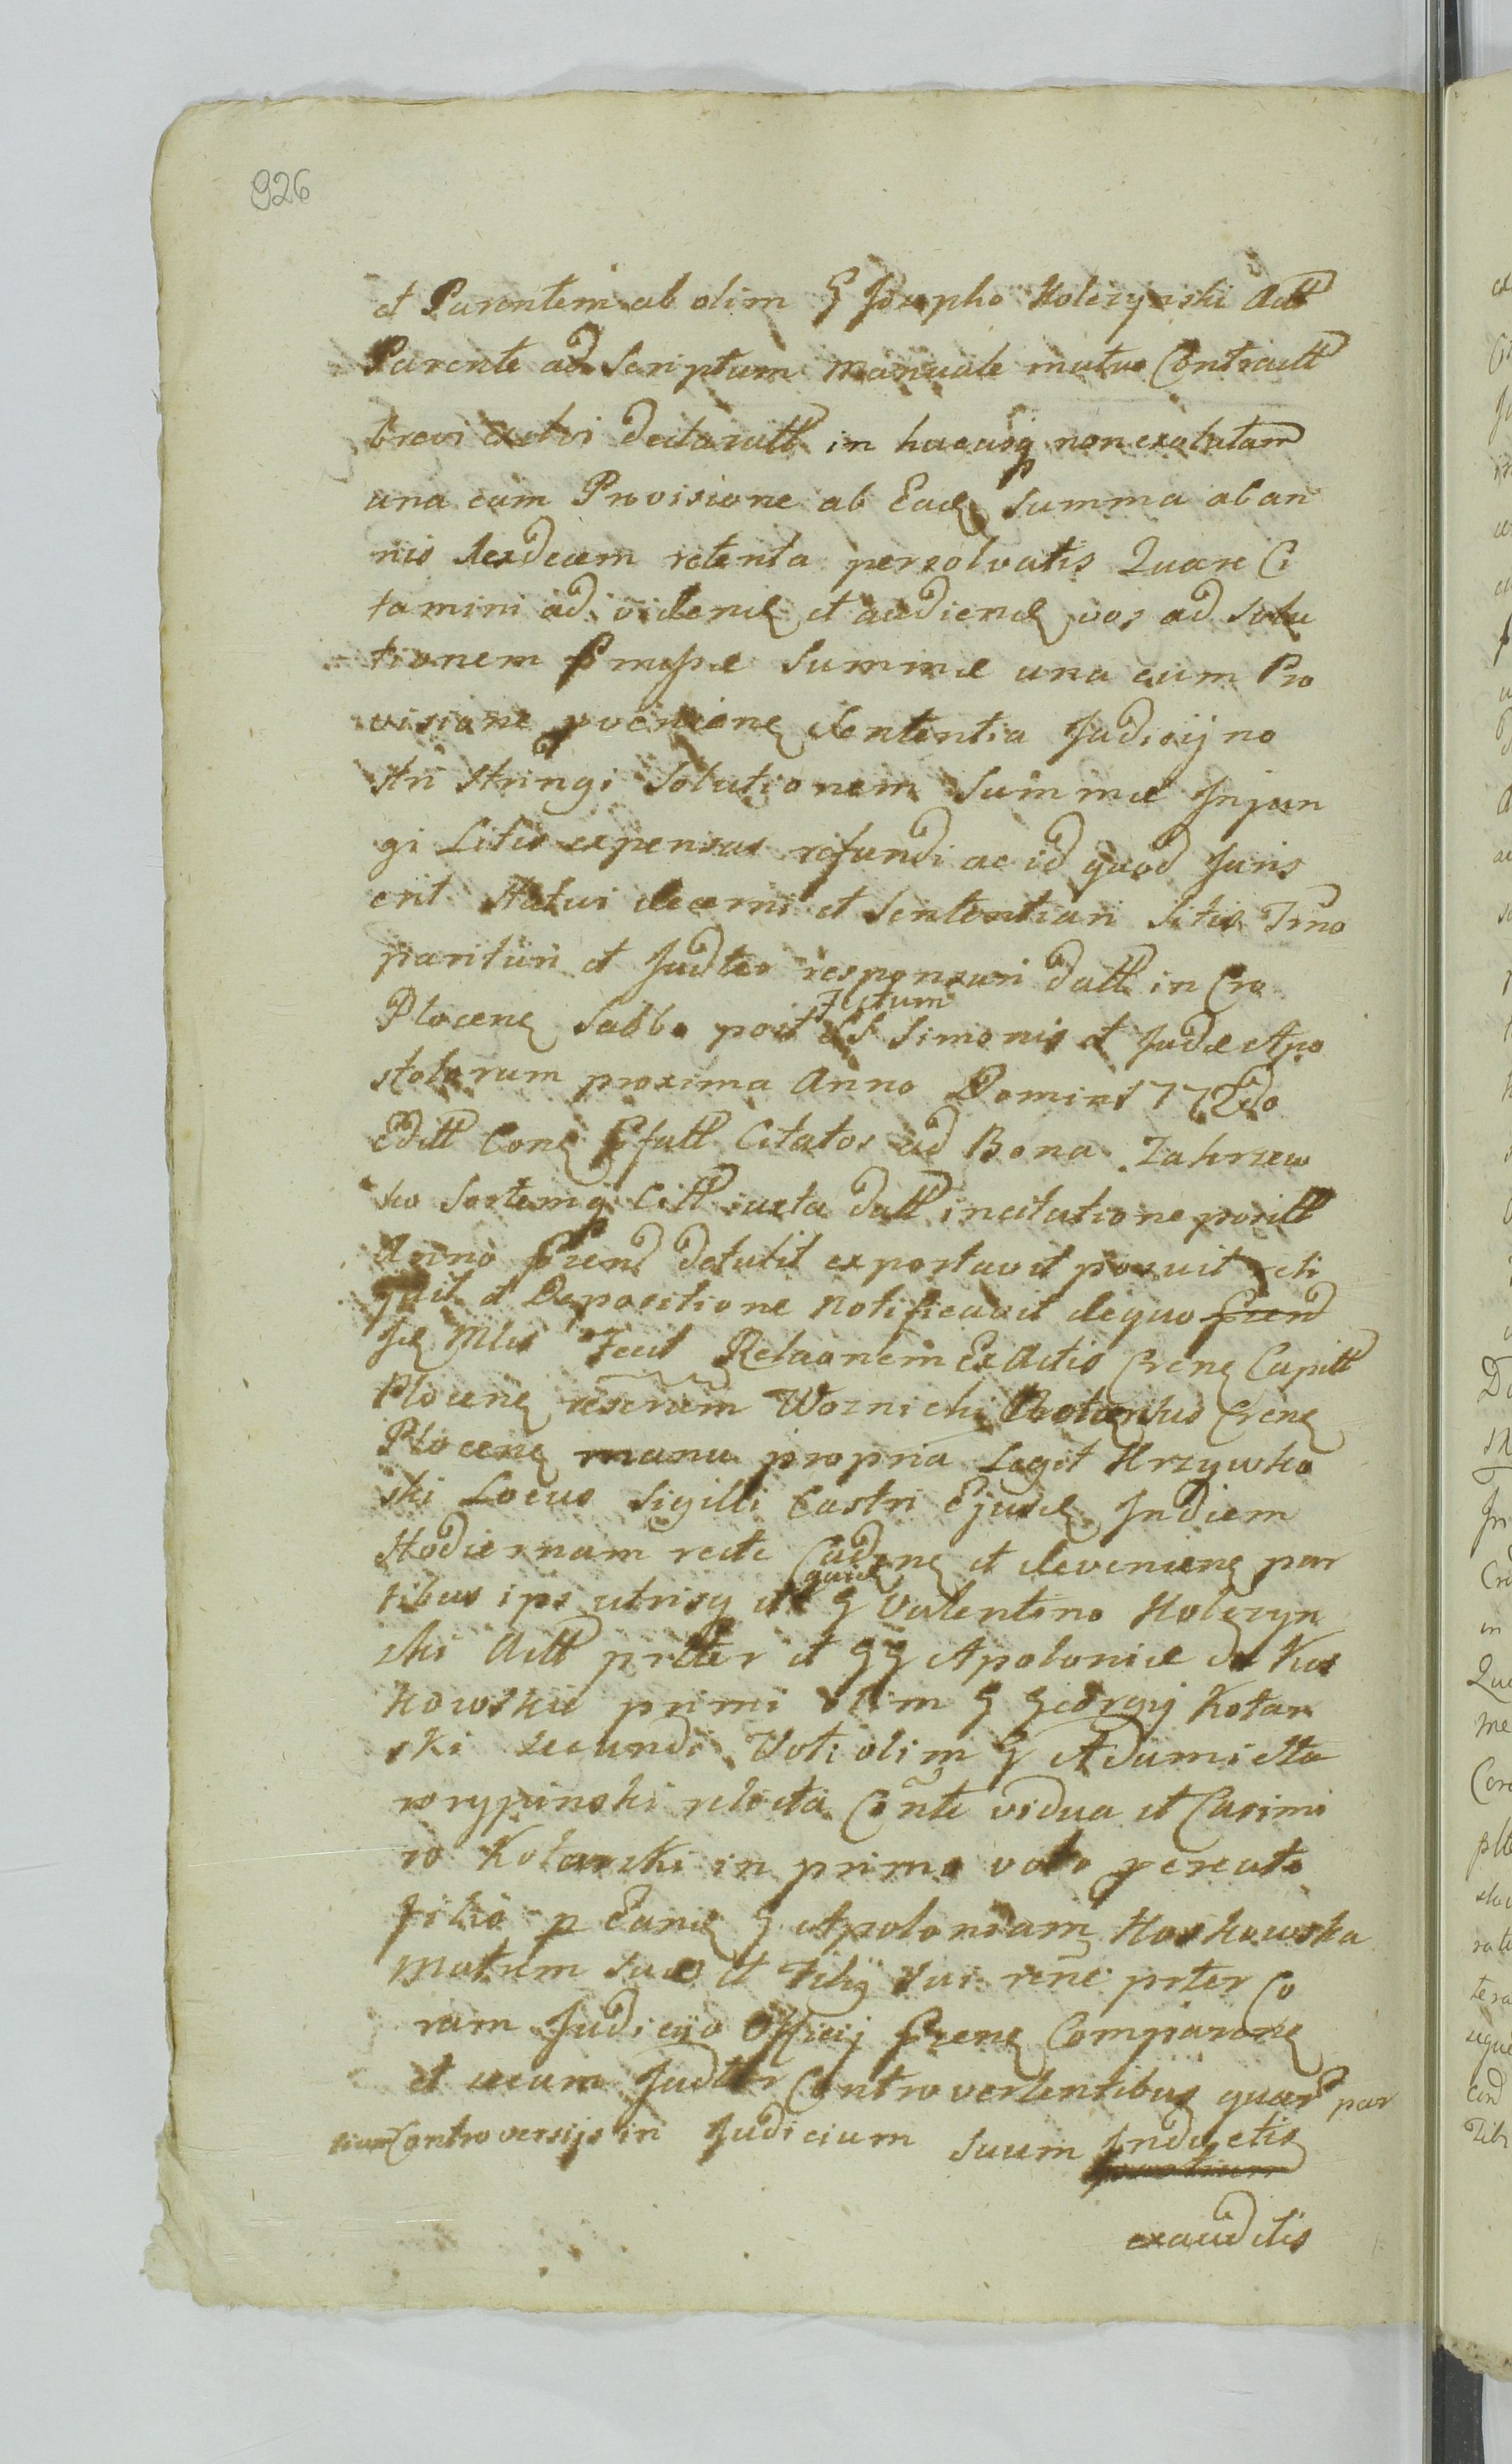 926
et Parentem ab olim G Josepho Kolczynski Actt
Parente ad Scriptum manuale mutue Contractt
brevi exolvi declaratt in hacusq non exolutam
una cum Provisione ab Ead Summa ab an
nis sexdecem retenta persolvatis Quare Ci
tamini ad vidend et audiend vos ad solu
tionem pmissæ Summæ una cum Pro
visione provenien Sententia Judicij no
stri stringi Solutionem Summæ Injun
gi Litis expensas refundi ac id quod Juris
erit Statui decerni et Sententiari Sitis Trno
parituri et Judter responsuri datt in Cro
Plocen Sabbo post Festum SS Simonis et Judæ Apo
stolorum proxima Anno Domini 1772do
Editt Con Citatos ad Bona Zakrzew
ko Sortemq Citt iuxta datt in citatione positt
Anno detulit exportavit posuit reli
quit et Depositione notificavit de quo
Fecit Relaonem Ex Actis Cren Capitt
Plocen Woznicki Cren
Plocen manu propria Legit Krzywko
ski Locus Sigilli Castri Ejusd In diem
Hodiernam recte Caden et devenien par
tibus ips utrisq G Valentino Kolczyn
ski Actt prlter et GG Apolonia de Kos
kowskie primi olim G Georgij Kotar
ski secundi Voti olim G Adami Sta
rorypinski relicta Contte vidua et Casimi
ro Kotarski in primo voto procreato
Filio p Eand G Apoloniam Koskowska
Matrem suo et Filij sui prter Co
ram Judicijo Officij Comparen
et secum Judtter Controvertentibus quar par
tium Controversijs in Judicium Suum Inductis
exauditis